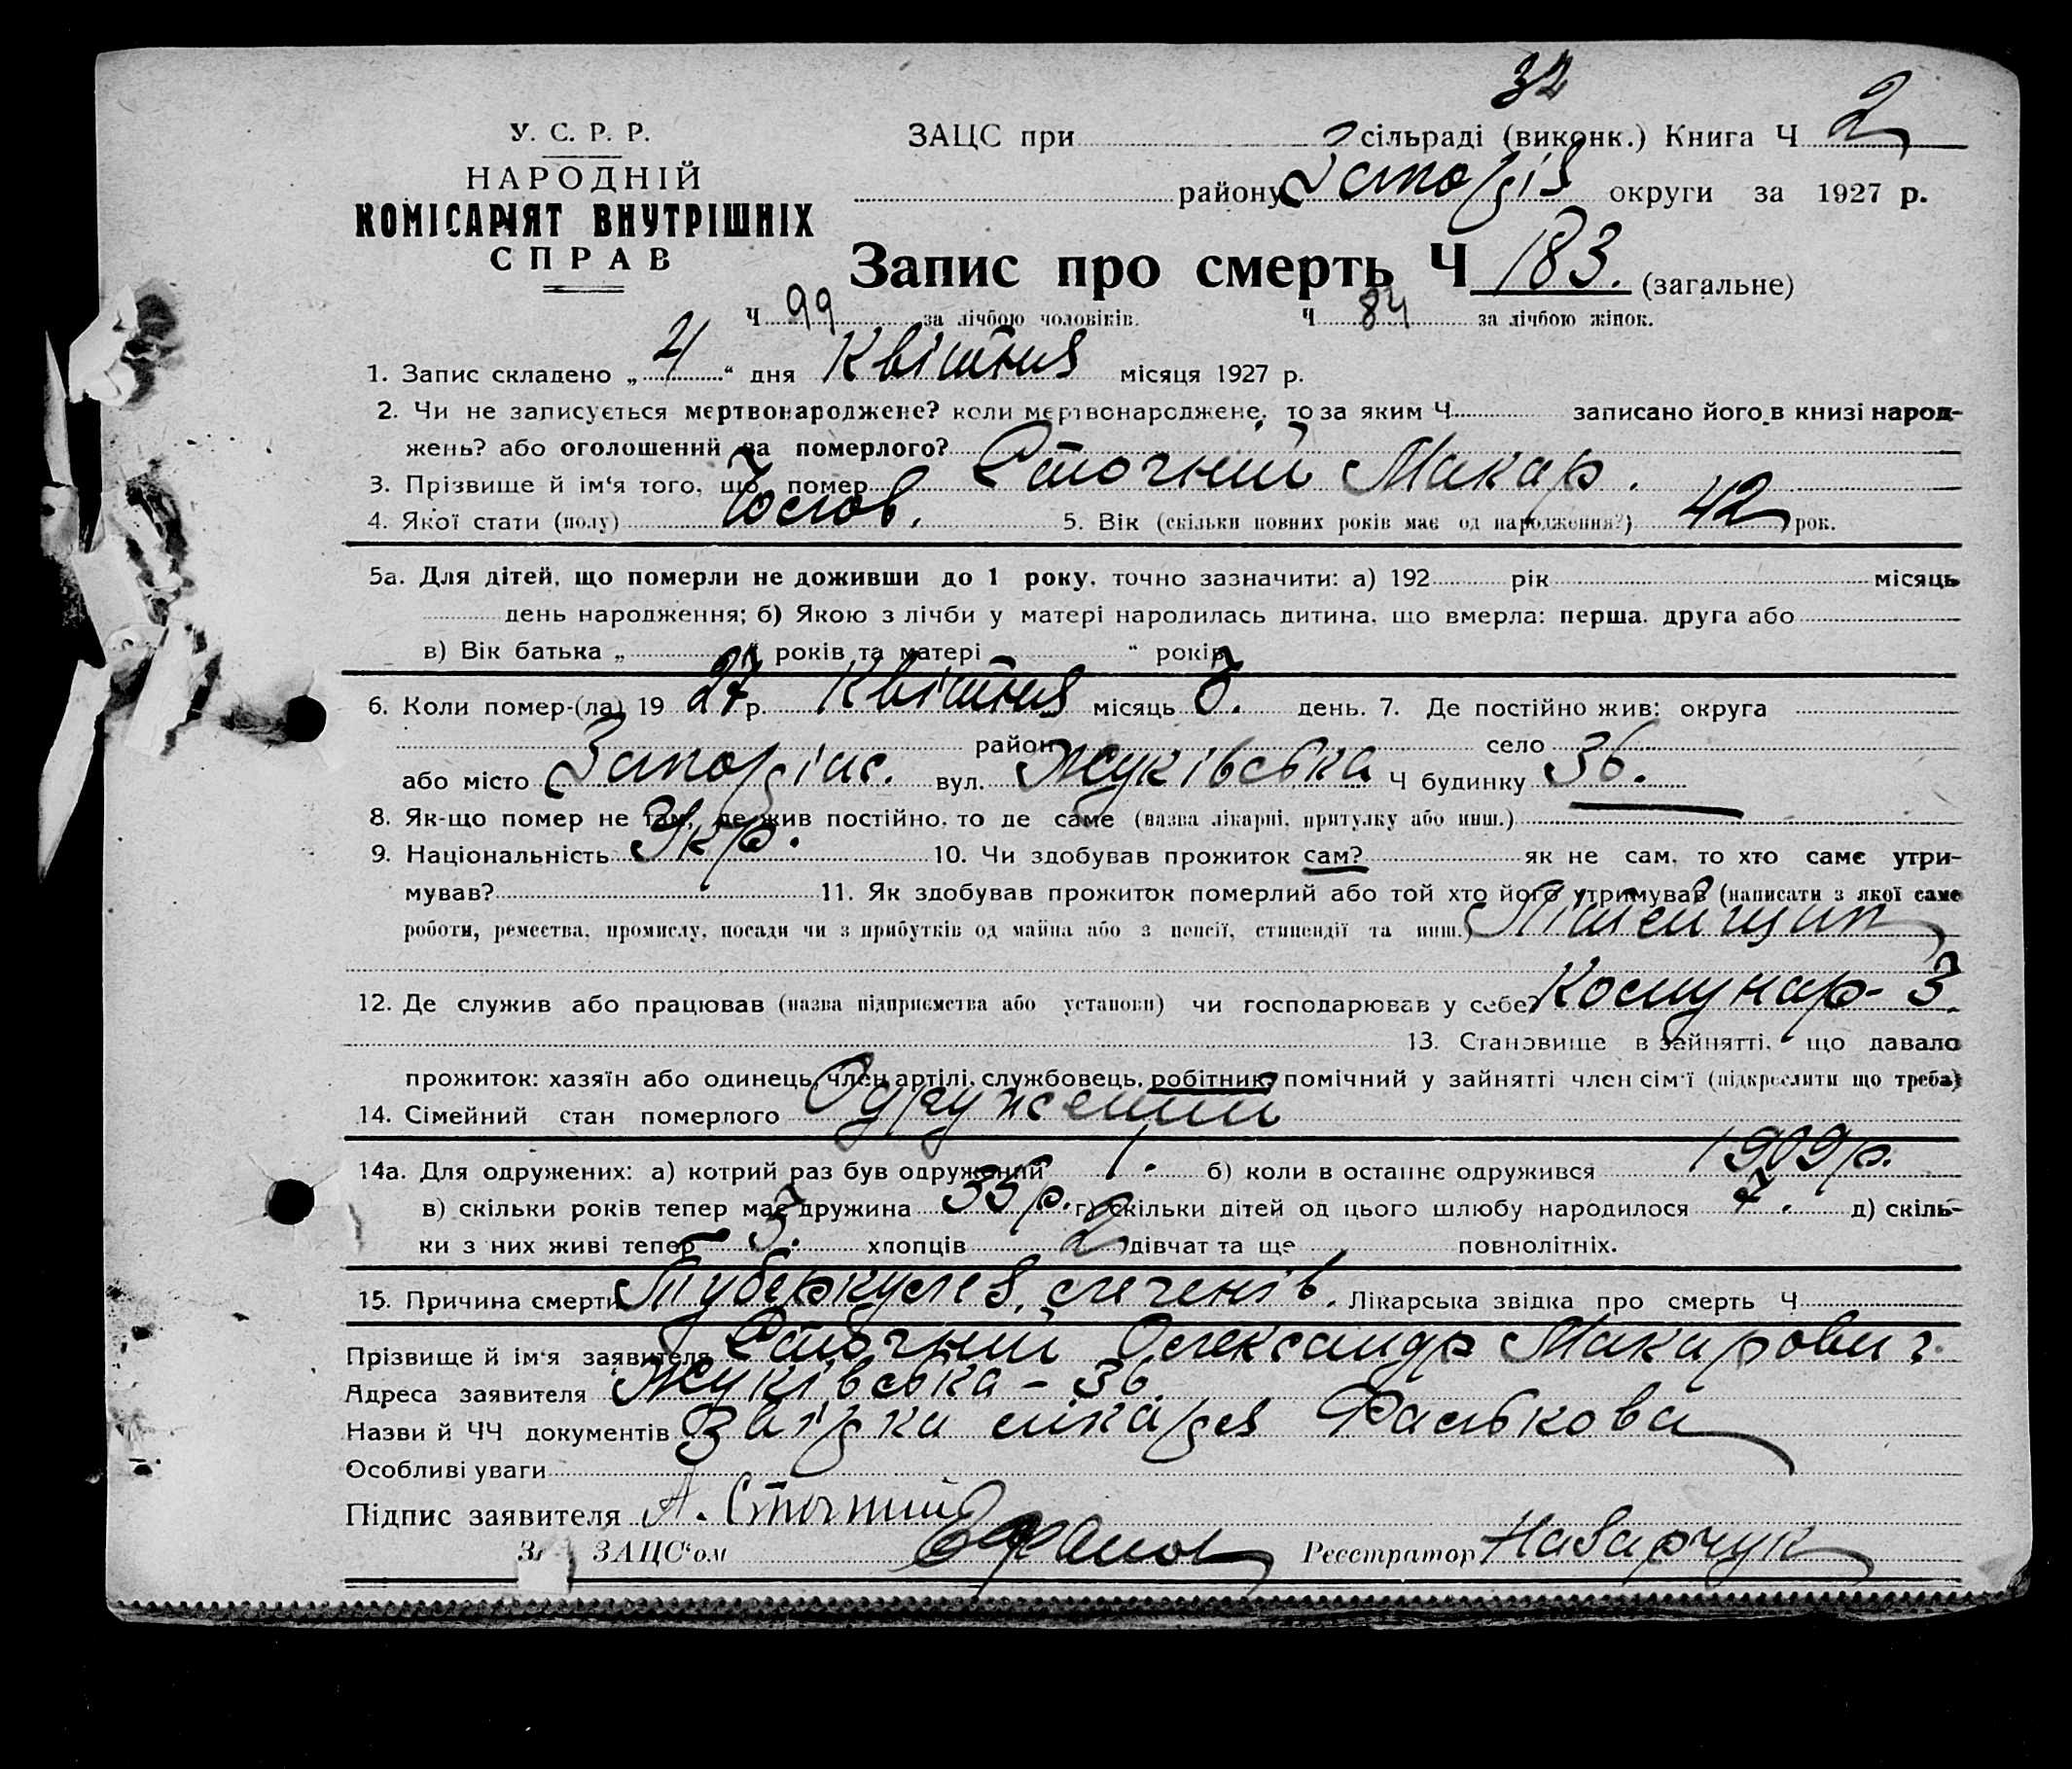 32
У. С. Р. Р.
ЗАЦС при сільраді (виконк.) Книга Ч 2
НАРОДНІЙ
району Запоріз округи за 1927 р.
КОМІСАРІЯТ ВНУТРІШНІХ
СПРАВ
Запис про смерть Ч 183. (загальне)
Ч 99 за лічбою чоловіків. Ч 84 за лічбою жінок.
1. Запис складено „ 4 “ дня Квітня місяця 1927 р.
2. Чи не записується мертвонароджене? коли мертвонароджене, то за яким Ч записано його в книзі народ-
жень? або оголошений за померлого?
3. Прізвище й ім‘я того, що помер Сточний Макар.
4. Якої стати (полу) Чолов. 5. Вік (скільки повних років має од народження?) 42 рок.
5а. Для дітей, що померли не доживши до 1 року, точно зазначити: а) 192 рік місяць
день народження; б) Якою з лічби у матері народилась дитина, що вмерла: перша, друга або
в) Вік батька „ “ років та матері “ років
6. Коли помер-(ла) 19 27 р. Квітня місяць 3. день. 7. Де постійно жив: округа
район село
або місто Запоріж. вул. Жуківська Ч будинку 36.
8. Як-що помер не там, де жив постійно, то де саме (назва лікарні, притулку або инш.)
9. Національність Укр. 10. Чи здобував прожиток сам? як не сам, то хто саме утри-
мував? 11. Як здобував прожиток померлий або той хто його утримував (написати з якої саме
роботи, ремества, промислу, посади чи з прибутків од майна або з пенсії, стипендії та инш.)
12. Де служив або працював (назва підприємства або установи) чи господарював у себе? Комунар - 3.
13. Становище в зайнятті, що давало
прожиток: хазяїн або одинець, член артілі, службовець, робітник, помічний у зайнятті член сім‘ї (підкреслити що треба)
14. Сімейний стан померлого Одружений
14а. Для одружених: а) котрий раз був одружений 1. б) коли в останнє одружився 1909 р.
в) скільки років тепер має дружина 35 р. г) скільки дітей од цього шлюбу народилося 7. д) скіль-
ки з них живі тепер 3. хлопців 2 дівчат та ще повнолітніх.
15. Причина смерти Туберкулез легенів. Лікарська звідка про смерть Ч
Прізвище й ім‘я заявителя Сточний Олександр Макарович.
Адреса заявителя Жуківська - 36.
Назви й ЧЧ документів Звідка лікаря Фалькова
Особливі уваги
Підпис заявителя А. Сточний
ЗАЦС‘ом Реєстратор Назарчук